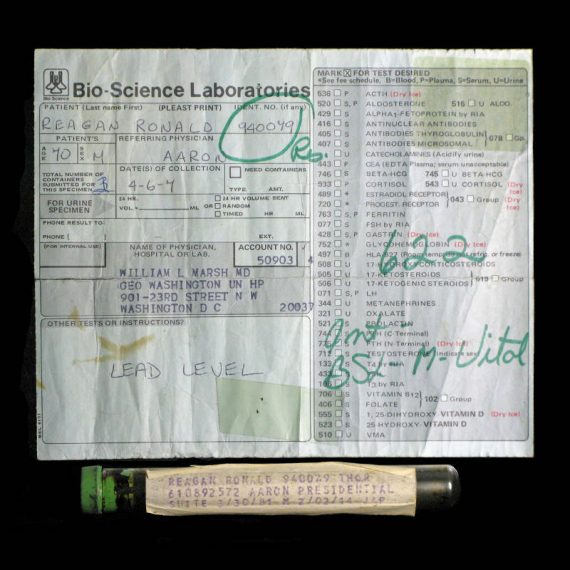 Bio-Science
Bio-Science Laboratories
PATIENT (Last name First) (PLEASE PRINT) IDENT. NO. (if any)
REAGAN RONALD 940079
PATIENT'S REFERRING PHYSICIAN
AGE 70 SEX M AARON
TOTAL NUMBER OF CONTAINERS SUBMITTED FOR THIS SPECIMEN
DATE(S) OF COLLECTION NEED CONTAINERS
TYPE AMT.
FOR URINE SPECIMEN
24 HR. VOL. ML
24 HR VOLUME SENT
or RANDOM
TIMED HR ML
PHONE RESULT TO:
PHONE ( ) EXT.
(FOR INTERNAL USE) NAME OF PHYSICIAN, HOSPITAL OR LAB. ACCOUNT NO.
50903 4
WILLIAM L MARSH MD
GEO WASHINGTON UN HP
901-23RD STREET N W
WASHINGTON D C 20037
OTHER TESTS OR INSTRUCTIONS?
LEAD LEVEL
MARK X FOR TEST DESIRED
*See fee schedule, B=Blood, P=Plasma, S=Serum, U=Urine
536 P ACTH (Dry Ice)
520 S, P ALDOSTERONE 516 U ALDO.
429 S ALPHA1-FETOPROTEIN by RIA
416 S ANTINUCLEAR ANTIBODIES
405 S ANTIBODIES THYROGLOBULIN
407 S ANTIBODIES MICROSOMAL
078 Gp.
U CATECHOLAMINES (Acidify urine)
443 P CEA (EDTA Plasma; serum unacceptable)
746 S BETA-HCG 745 U BETA-HCG
933 S CORTISOL 543 U CORTISOL (Dry Ice)
489 * ESTRADIOL RECEPT.
720 * PROGEST. RECEPT.
043 Group (Dry Ice)
763 S, P FERRITIN
077 S FSH by RIA
428 S GASTRIN (Dry Ice)
752 * GLYCOHEMOGLOBIN (Dry Ice)
497 HLA-B27 (Room temperature, do not refrig. or freeze)
U 17-HYDROXYCORTICOSTEROIDS
505 U 17-KETOSTEROIDS
506 U 17-KETOGENIC STEROIDS
619 Group
071 S, P LH
344 U METANEPHRINES
321 U OXALATE
PROLACTIN
PTH (C-Terminal)
PTH (N-Terminal) (Dry Ice)
712 TESTOSTERONE (Indicate sex)
T4 by RIA
T3 by RIA
706 S VITAMIN B12
406 S FOLATE
102 Group
555 S 1, 25-DIHYDROXY-VITAMIN D (Dry Ice)
523 S 25 HYDROXY-VITAMIN D
510 U VMA
622
BSL-M-Vital
REAGAN RONALD 940079 THOR
610892572 AARON PRESIDENTIAL
SUITE 3/30/81